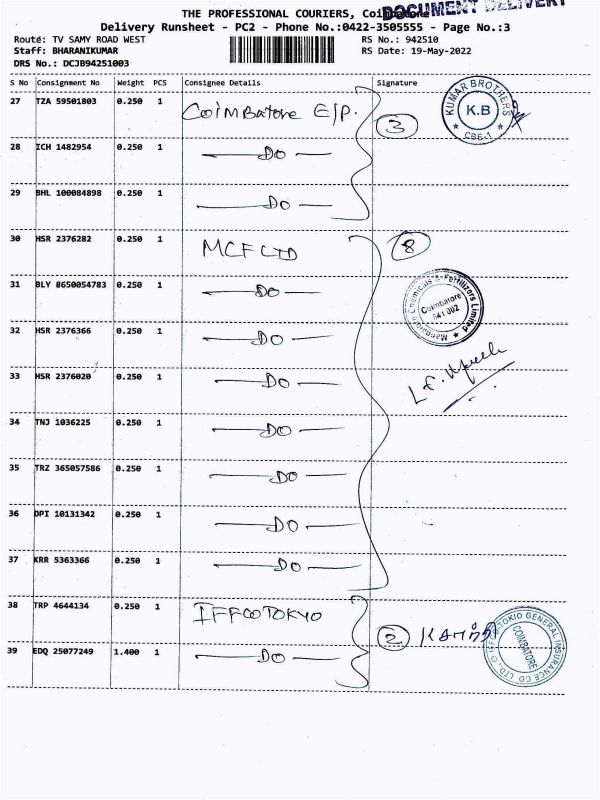 THE PROFESSIONAL COURIERS, Coimbatore
DOCUMENT DELIVERY
Delivery Runsheet - PC2 - Phone No.:0422-3505555 - Page No.:3
Route: TV SAMY ROAD WEST RS No.: 942510
Staff: BHARANIKUMAR RS Date: 19-May-2022
DRS No.: DCJB94251003
S No Consignment No Weight PCS Consignee Details Signature
27 TZA 59501803 0.250 1 Coimbatore E/P. 3
KUMAR BROTHERS K.B CBE-1
28 ICH 1482954 0.250 1 DO
29 BHL 100084898 0.250 1 DO
30 HSR 2376282 0.250 1 MCF LTD 8
31 BLY 8650054783 0.250 1 DO
Mangalore Chemicals & Fertilizers Limited Coimbatore 641 002
32 HSR 2376366 0.250 1 DO
33 HSR 2376020 0.250 1 DO
34 TNJ 1036225 0.250 1 DO
35 TRZ 365057586 0.250 1 DO
36 DPI 10131342 0.250 1 DO
37 KRR 5363366 0.250 1 DO
38 TRP 4644134 0.250 1 IFFCO TOKYO 2
IFFCO-TOKIO GENERAL INSURANCE CO. LTD. COIMBATORE
39 EDQ 25077249 1.400 1 DO